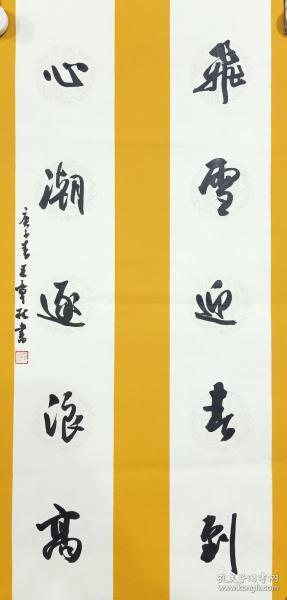 飛雪迎春到
心潮逐浪高
庚子春王章權書
孔夫子旧书网